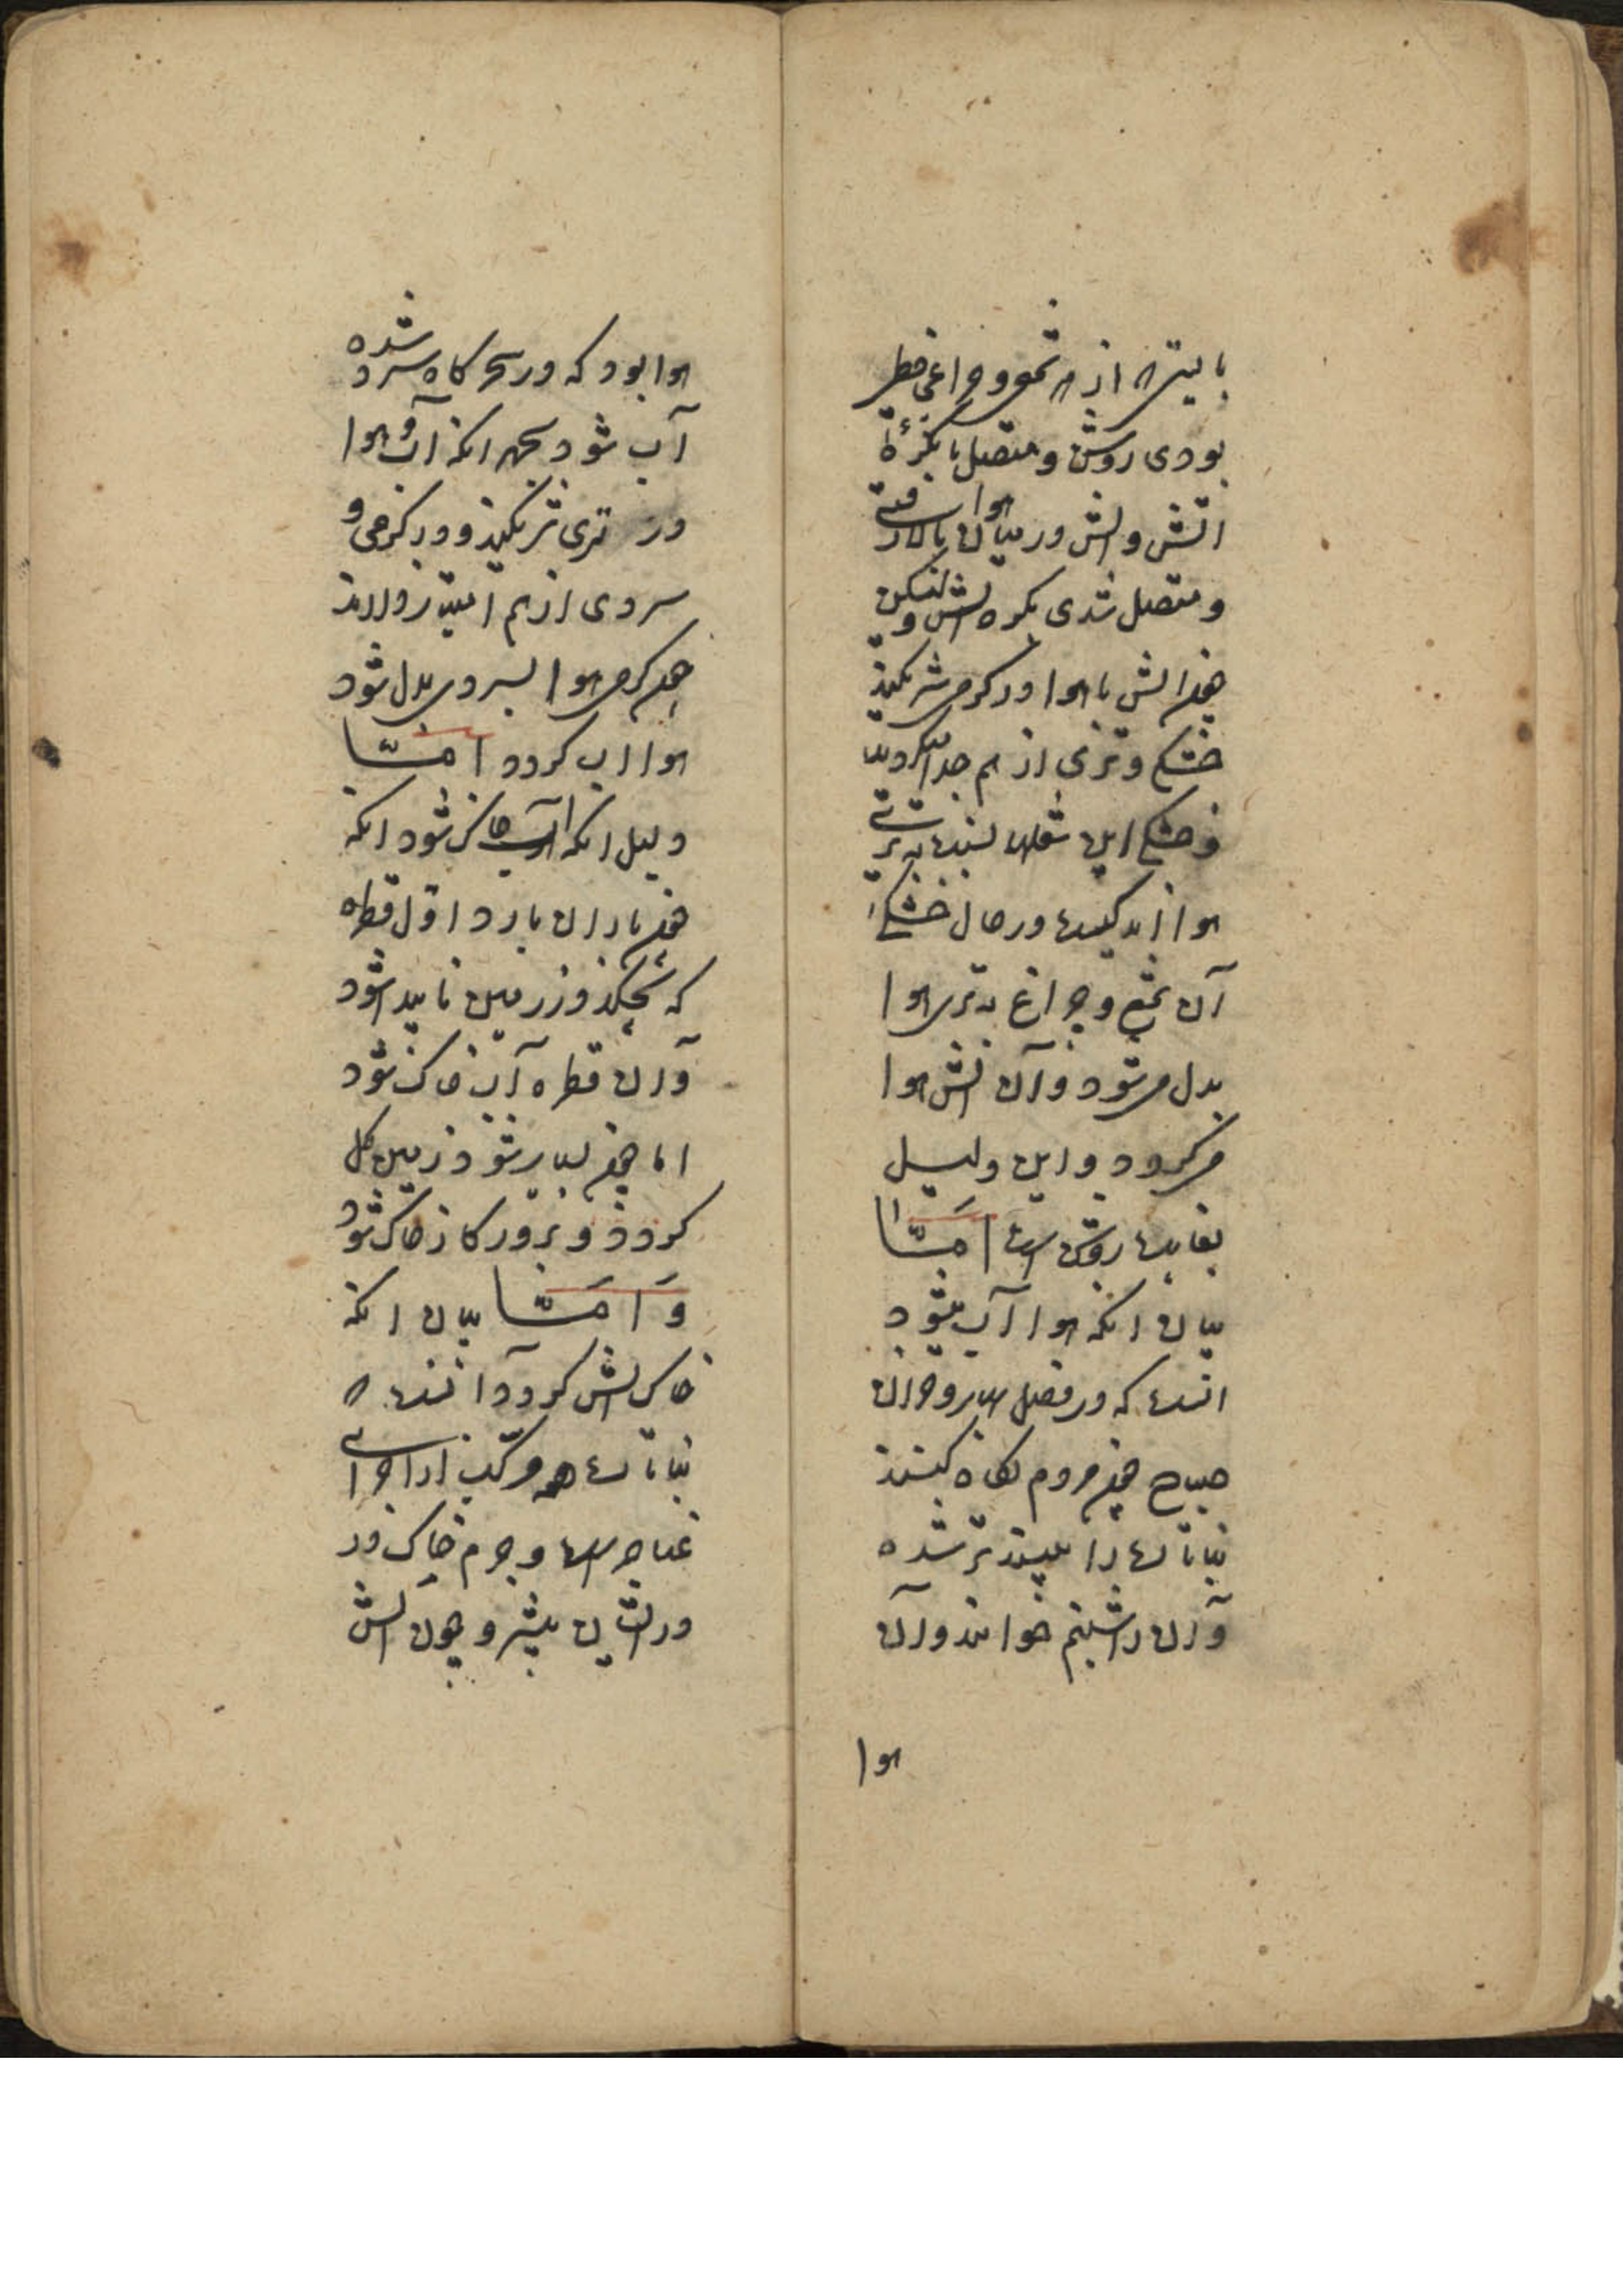 بایستی که از هر شمع و چراغی خطی
بودی روشن و متصل با بکرهٔ
آتش و آتش در میان هوا بالا رفتی
و متصل شدی بکره آتش و لیکن
چون آتش با هوا در گرمی شریکند
خشکی و تری از هم جدا میکردند
و خشکی این شعلها نسبت به تری
هوا اندکیست در حال خشکی
آن شمع و چراغ به تری هوا
بدل می شود و آن آتش هوا
می گردد و این دلیل
بغایت روشن است امّا
بیان انکه هوا آب میشود
انست که در فصل بهار و خزان
صباح چون مردم نگاه کنند
نباتات را بینند تر شده
و آن را شبنم خوانند و آن
هوا
هوا بود که در سحرگاه سرد شده
آب شود بجهر انکه آب و هوا
در تری شریکند و در گرمی و
سردی از هم امتیاز دارند
چون گرمی هوا بسردی بدل شود
هوا اب گردد امّا
دلیل انکه آب خاک شود انکه
چون باران بارد اوّل قطره
که بچکد در زمین ناپیدا شود
و آن قطره آب خاک شود
اما چون بسیار شود زمین گل
گردد و بمرور کار خاک شود
وَ امَّا بیان انکه
خاک آتش گردد آنست که
نباتات مرکب از اجزای
عناصر است و جرم خاک در
در ایشان بیشتر و چون آتش